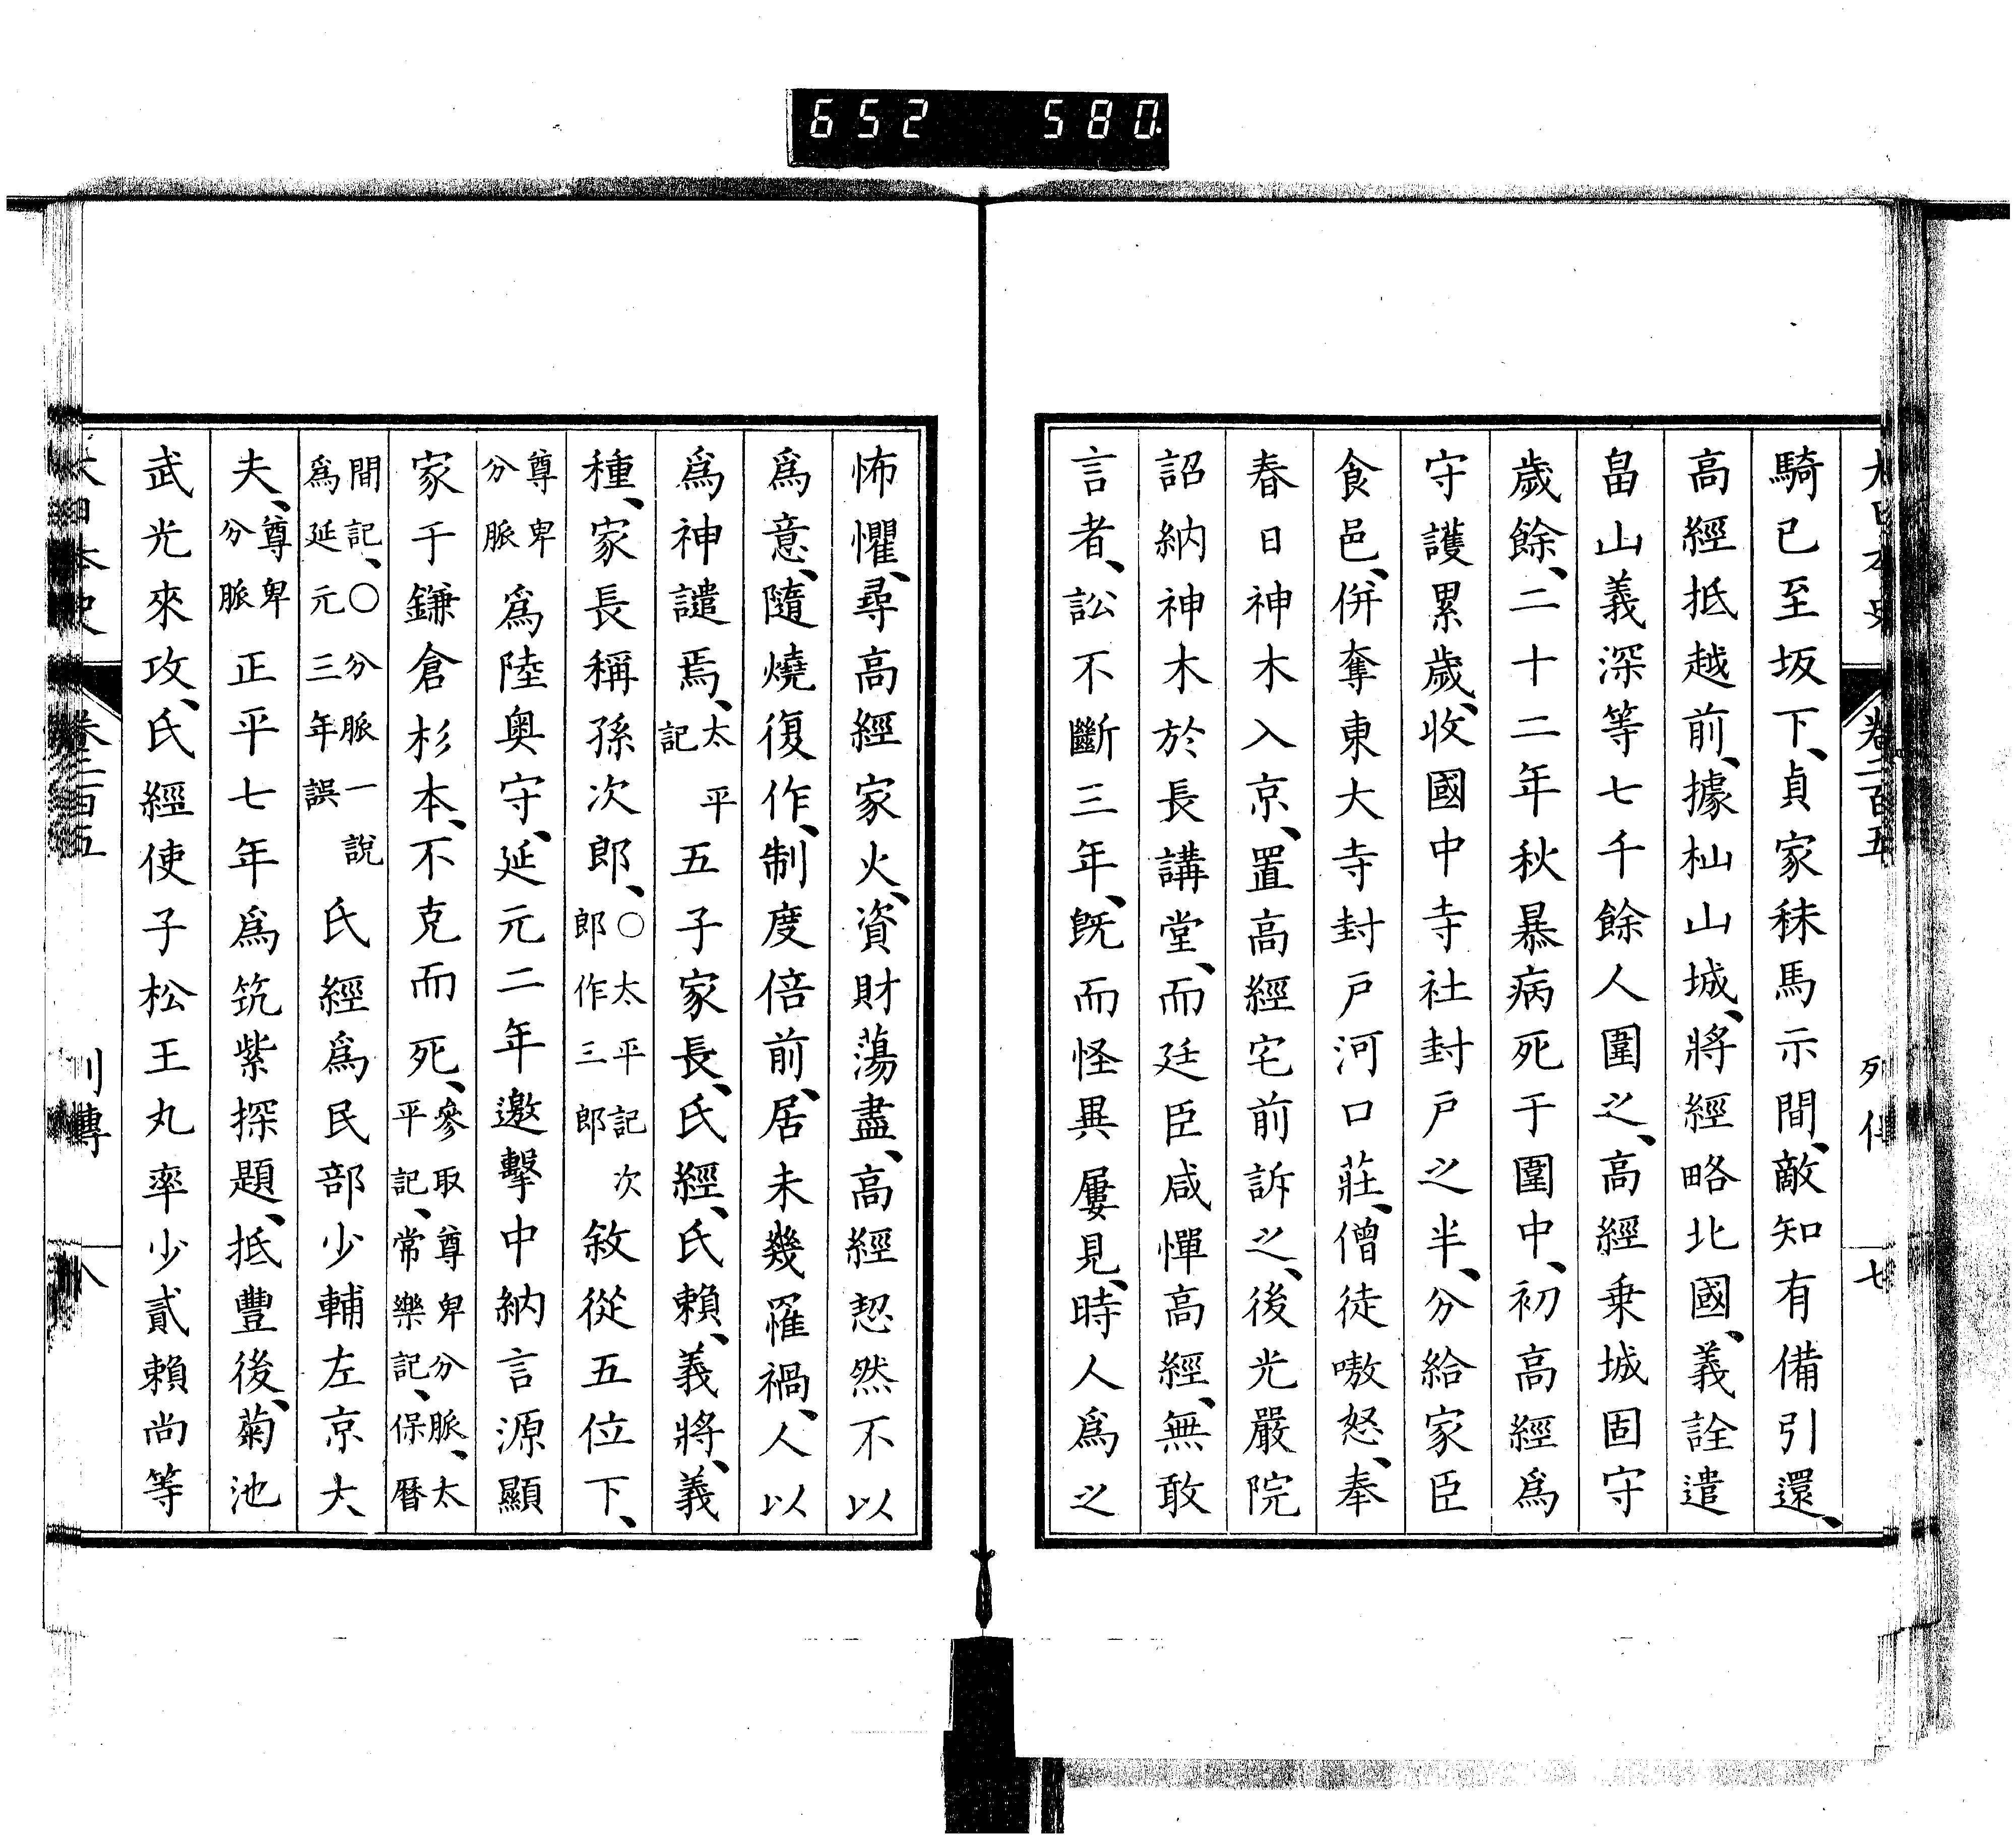 652 580
大日本史 卷二百五 列傳 七
騎已至坂下、貞家秣馬示間、敵知有備引還、
高經抵越前、據杣山城、將經略北國、義詮遣
畠山義深等七千餘人圍之、高經乘城固守
歲餘、二十二年秋暴病死于圍中、初高經爲
守護累歲、收國中寺社封戸之半、分給家臣
食邑、併奪東大寺封戸河口莊、僧徒嗷怒、奉
春日神木入京、置高經宅前訴之、後光嚴院
詔納神木於長講堂、而廷臣咸憚高經、無敢
言者、訟不斷三年、旣而怪異屢見、時人爲之
怖懼、尋高經家火、資財蕩盡、高經恝然不以
爲意、隨燒復作、制度倍前、居未幾罹禍、人以
爲神譴焉、太平記五子家長、氏經、氏賴、義將、義
種、家長稱孫次郎、〇太平記次郎作三郎敘從五位下、
尊卑分脈爲陸奥守、延元二年邀擊中納言源顯
家于鎌倉杉本、不克而死、參取尊卑分脈、太平記、常樂記、保曆
間記、〇分脈一說爲延元三年誤氏經爲民部少輔左京大
夫、尊卑分脈正平七年爲筑紫探題、抵豐後、菊池
武光來攻、氏經使子松王丸率少貳賴尚等
大日本史 卷二百五 列傳 八